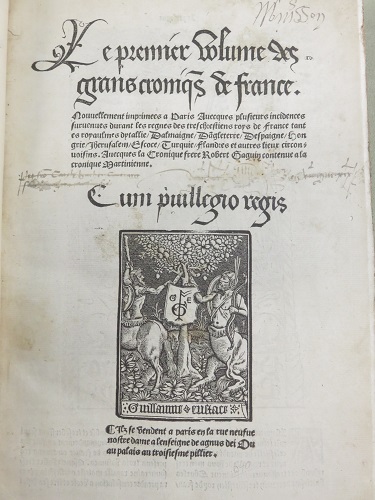 Le premier volume des
grans croniqs de france.
Nouuellement imprimees a Paris Auecques plusieurs incidences
suruenues durant les regnes des treschestiens roys de France tant
es royaulmes dytallie / Dalmaigne / Dāgleterre / Despaigne / Hon
grie / Jherusalem / Escoce / Turquie / Flandres et autres lieux circons
voisins. Auecques la Cronique frere Robert Gaguin contenue a la
cronique Martinienne.
Cum puillegio regis
G E
Guillaume eustace
Ilz se vendent a paris en la rue neufue
nostre dame a lenseigne de agnus dei Ou
au palais au troisiesme pillier.